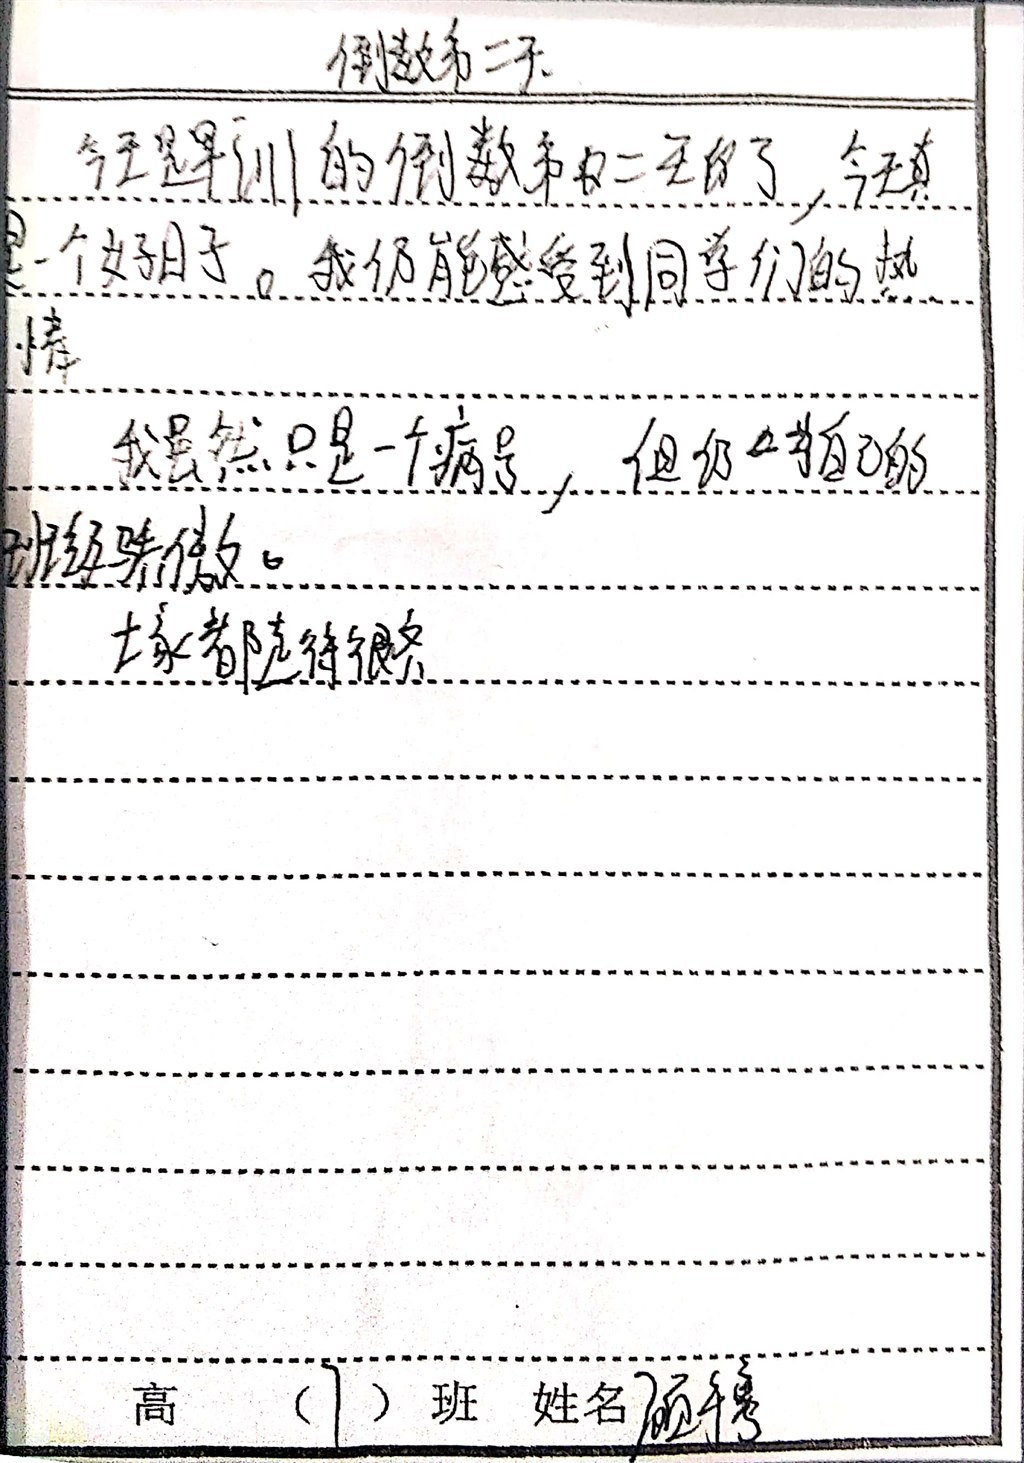 倒数第二天
今天是军训的倒数第二天的了,今天真
是一个好日子。我仍能感受到同学们的热
情
我虽然只是一个病号,但仍为自己的
班级骄傲。
大家都
高 (7) 班 姓名